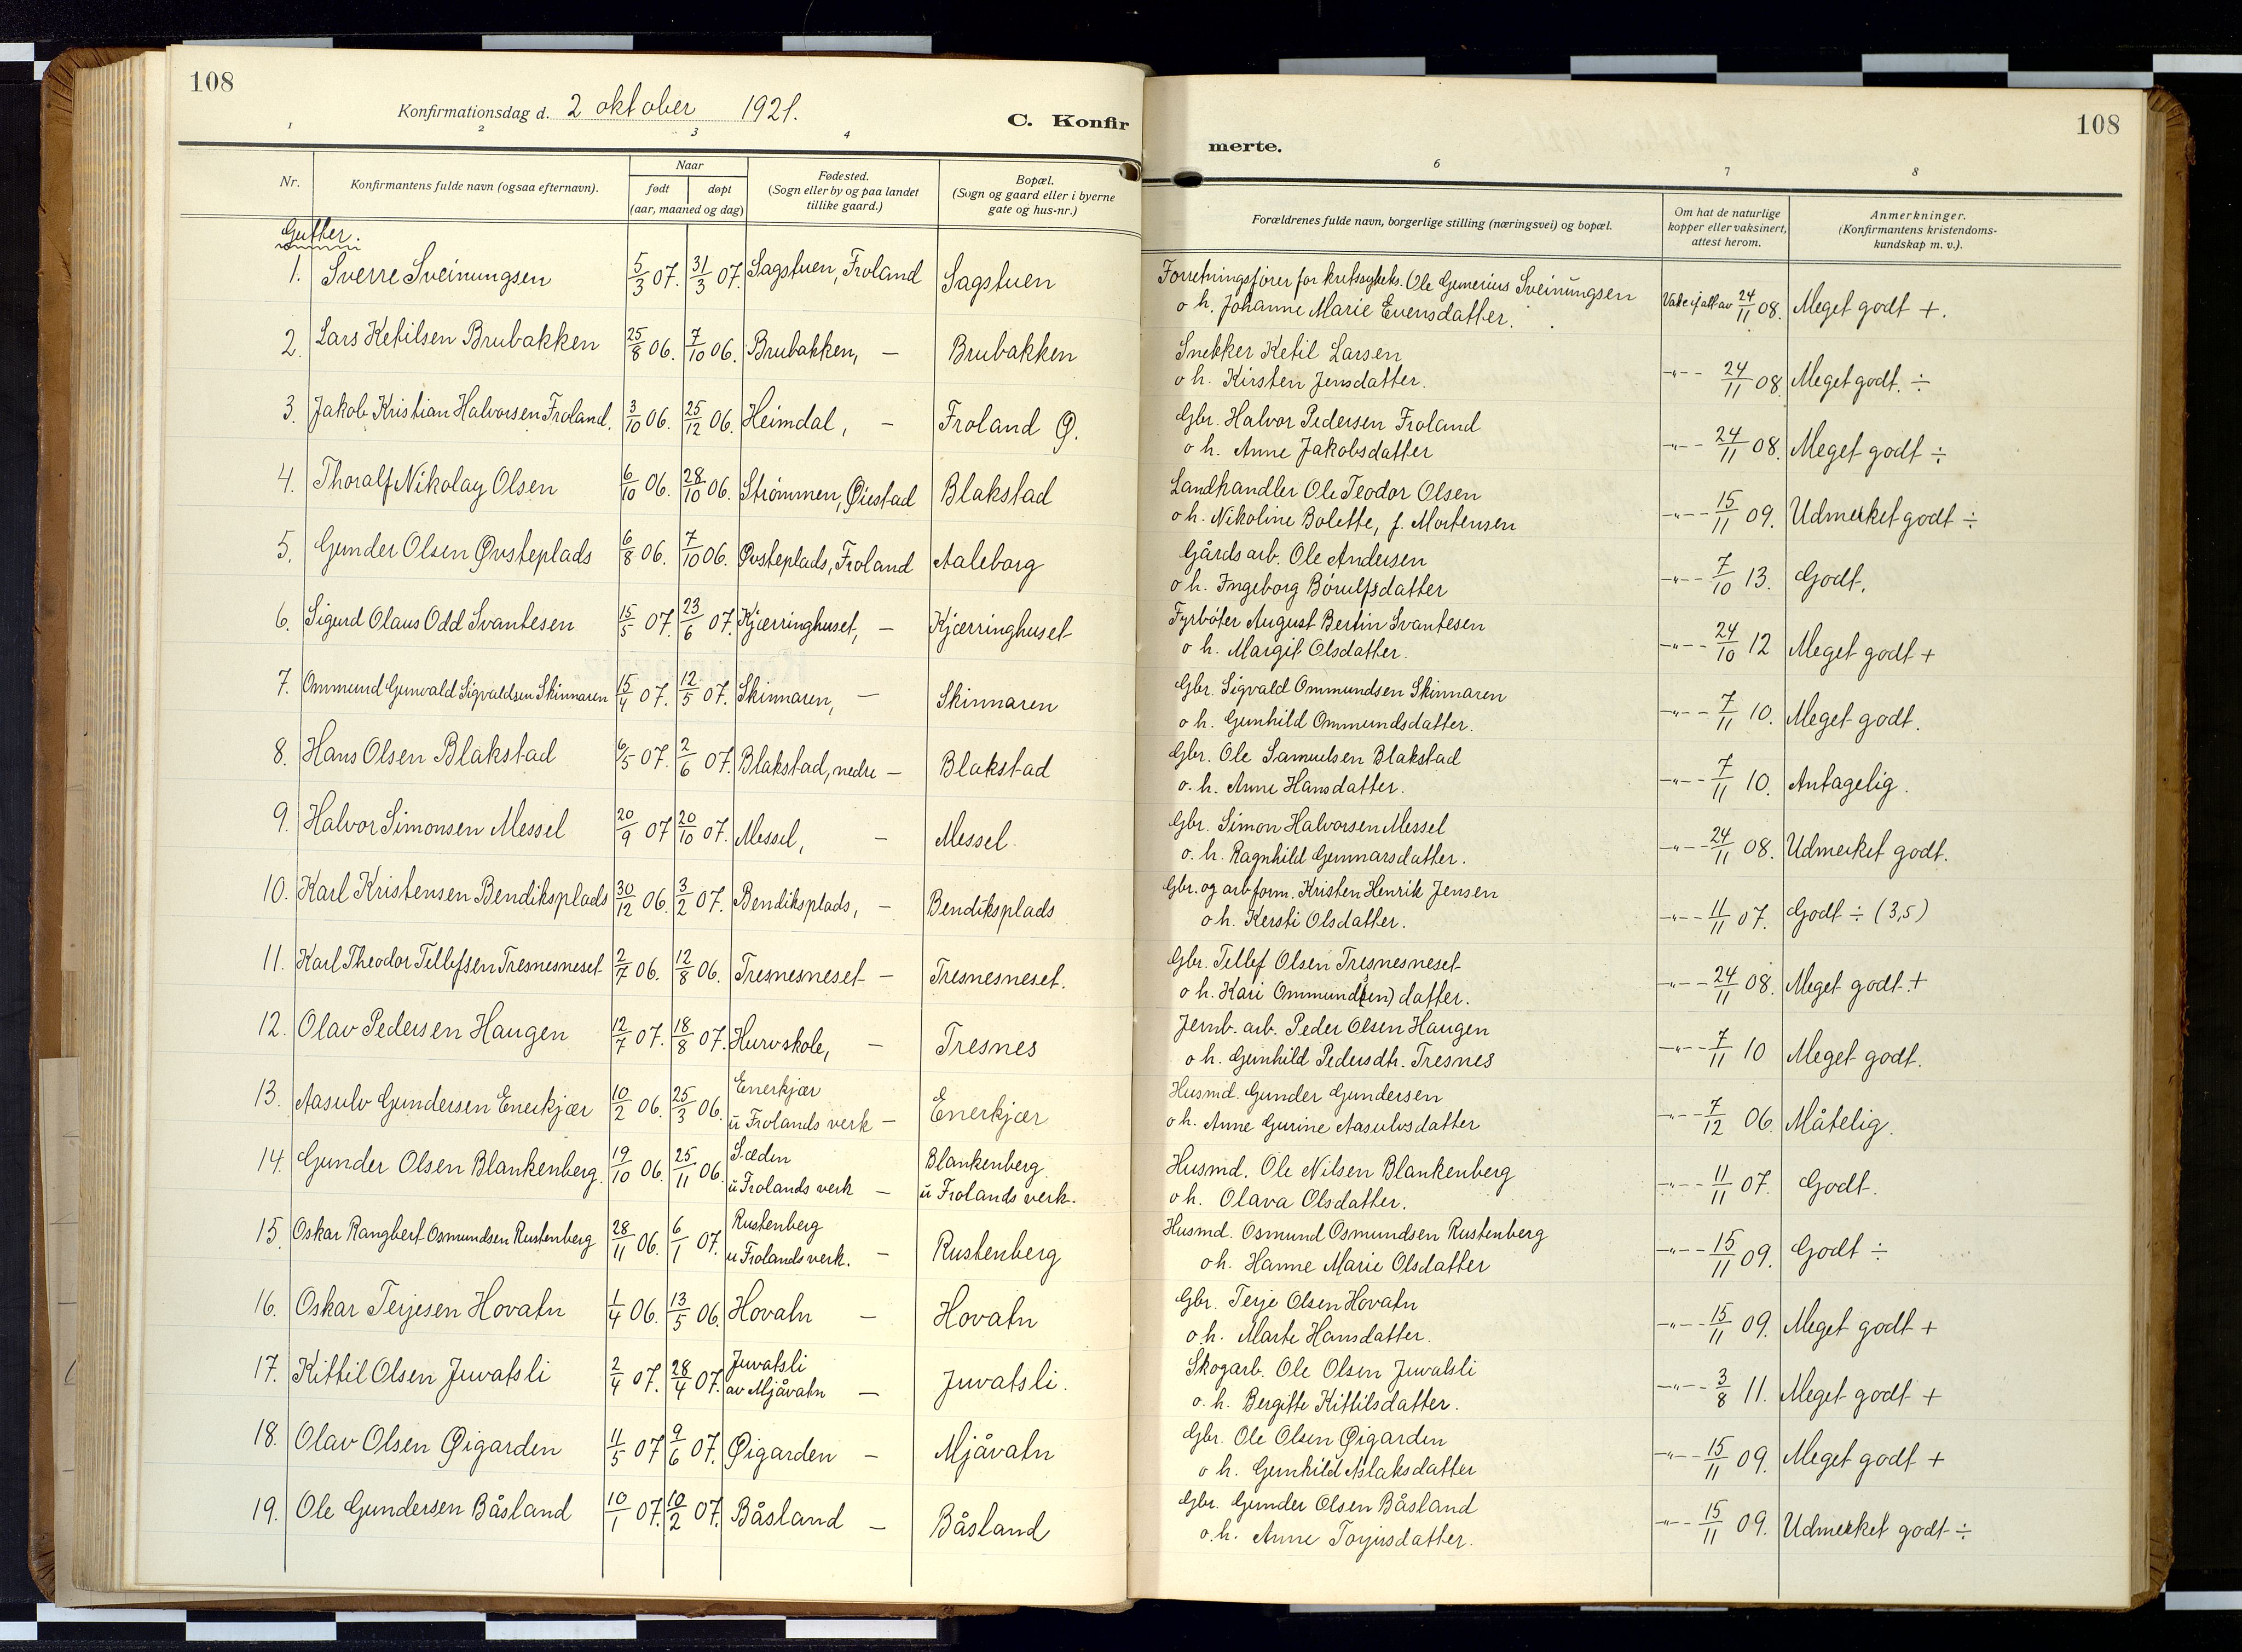 108
Konfirmationsdag d. 2 oktober 1921.
C. Konfir
merte.
108
1 2 3 4
6 7 8
Nr.
Konfirmantens fulde navn (ogsaa efternavn).
Naar
født døpt
(aar, maaned og dag)
Fødested.
(Sogn eller by og paa landet
tillike gaard.)
Bopæl.
(Sogn og gaard eller i byerne
gate og hus-nr.)
Forældrenes fulde navn, borgerlige stilling (næringsvei) og bopæl.
Om hat de naturlige
kopper eller vaksinert,
attest herom.
Anmerkninger.
(Konfirmantens kristendoms-
kundskap m. v.).
Gutter.
1. Sverre Sveinungsen 5/3 07. 31/3 07. Sagstuen, Froland Sagstuen
Forretningsfører for kretssykeks. Ole Gunerius Sveinungsen
o h. Johanne Marie Evensdatter. 24/11 08. Meget godt +.
2. Lars Ketilsen Brubakken 25/8 06. 7/10 06. Brubakken, — Brubakken
Snekker Ketil Larsen
o h. Kirsten Jensdatter. -"- 24/11 08. Meget godt. ÷
3. Jakob Kristian Halvorsen Froland. 3/10 06. 25/12 06. Heimdal, — Froland Ø.
Gbr. Halvor Pedersen Froland
o h. Anne Jakobsdatter -"- 24/11 08. Meget godt ÷
4. Thoralf Nikolay Olsen 6/10 06. 28/10 06. Strømmen, Øiestad Blakstad
Landhandler Ole Teodor Olsen
o h. Nikoline Bolette, f. Mortensen -"- 15/11 09. Udmerket godt ÷
5. Gunder Olsen Øvsteplads 6/8 06. 7/10 06. Øvsteplads, Froland Aaleborg
Gårds arb. Ole Andersen
o h. Ingeborg Børulfsdatter -"- 7/10 13. Godt.
6. Sigurd Olaus Odd Svantesen 15/5 07. 23/6 07. Kjærringhuset, — Kjærringhuset
Fyrbøter August Bertin Svantesen
o h. Margit Olsdatter. -"- 24/10 12 Meget godt +
7. Ommund Gunvald Sigvaldsen Skinnaren 15/4 07. 12/5 07. Skinnaren, — Skinnaren
Gbr. Sigvald Ommundsen Skinnaren
o h. Gunhild Ommundsdatter. -"- 7/11 10. Meget godt.
8. Hans Olsen Blakstad 6/5 07. 2/6 07. Blakstad, nedre — Blakstad
Gbr. Ole Samuelsen Blakstad
o. h. Anne Hansdatter. -"- 7/11 10. Antagelig.
9. Halvor Simonsen Messel 20/9 07 20/10 07. Messel, — Messel
Gbr. Simon Halvorsen Messel
o. h. Ragnhild Gunnarsdatter. -"- 24/11 08. Udmerket godt.
10. Karl Kristensen Bendiksplads 30/12 06. 3/2 07. Bendiksplads, — Bendiksplads
Gbr. og arbform. Kristen Henrik Jensen
o h. Kersti Olsdatter. -"- 11/11 07. Godt ÷ (3,5)
11. Karl Theodor Tellefsen Tresnesneset 2/7 06. 12/8 06. Tresnesneset — Tresnesneset.
Gbr. Tellef Olsen Tresnesneset
o h. Kari Ommund(sen)datter. -"- 24/11 08. Meget godt +
12. Olav Pedersen Haugen 12/7 07. 18/8 07. Hurvskole, — Tresnes
Jernb. arb. Peder Olsen Haugen
o h. Gunhild Pedersdtr. Tresnes -"- 7/11 10 Meget godt.
13. Aasulv Gundersen Enerkjær 10/2 06. 25/3 06. Enerkjær
u Frolands verk — Enerkjær
Husmd. Gunder Gundersen
o h. Anne Gurine Aasulvsdatter -"- 7/12 06. Måtelig.
14. Gunder Olsen Blankenberg. 19/10 06. 25/11 06. Sæden
u Frolands verk — Blankenberg
u Frolands verk.
Husmd. Ole Nilsen Blankenberg
o h. Olava Olsdatter. -"- 11/11 07. Godt.
15. Oskar Rangbert Osmundsen Rustenberg 28/11 06. 6/1 07. Rustenberg
u Frolands verk. — Rustenberg
Husmd. Osmund Osmundsen Rustenberg
o h. Hanne Marie Olsdatter -"- 15/11 09. Godt ÷
16. Oskar Terjesen Hovatn 1/4 06. 13/5 06. Hovatn — Hovatn
Gbr. Terje Olsen Hovatn
o. h. Marte Hansdatter. -"- 15/11 09. Meget godt +
17. Kittil Olsen Juvatsli 2/4 07. 28/4 07. Juvatsli
av Mjåvatn — Juvatsli.
Skogarb. Ole Olsen Juvatsli
o. h. Bergitte Kittilsdatter. -"- 3/8 11. Meget godt +
18. Olav Olsen Øigarden 11/5 07 9/6 07. Øigarden — Mjåvatn
Gbr. Ole Olsen Øigarden
o h. Gunhild Aslaksdatter -"- 15/11 09. Meget godt +
19. Ole Gundersen Båsland 10/1 07. 10/2 07. Båsland — Båsland
Gbr. Gunder Olsen Båsland
o. h. Anne Torjusdatter. -"- 15/11 09. Udmerket godt ÷